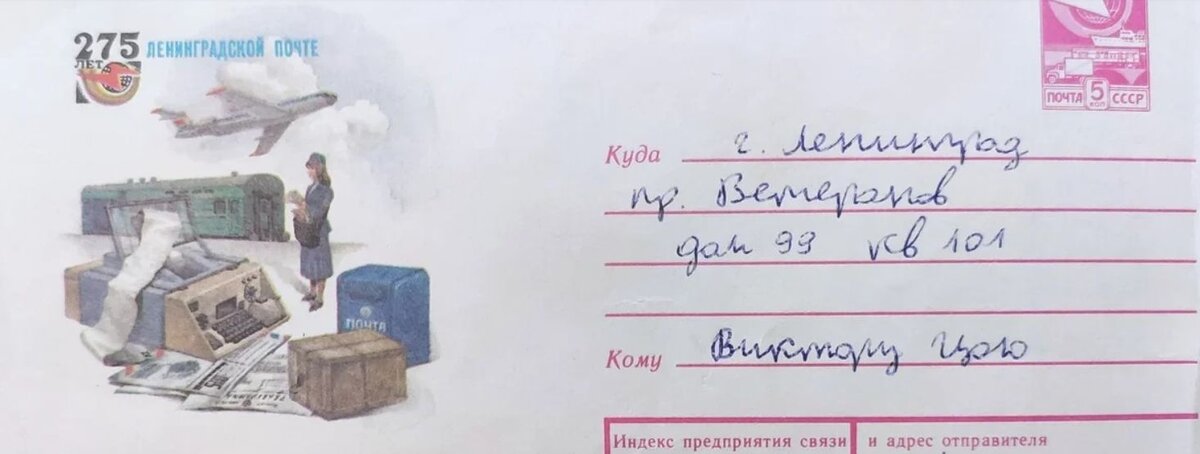 275 ЛЕНИНГРАДСКОЙ ПОЧТЕ
ЛЕТ
ПОЧТА 5 КОП СССР
Куда г. Ленинград
пр. Ветеранов
дом 99 кв 101
ПОЧТА
Кому Виктору Цою
Индекс предприятия связи и адрес отправителя